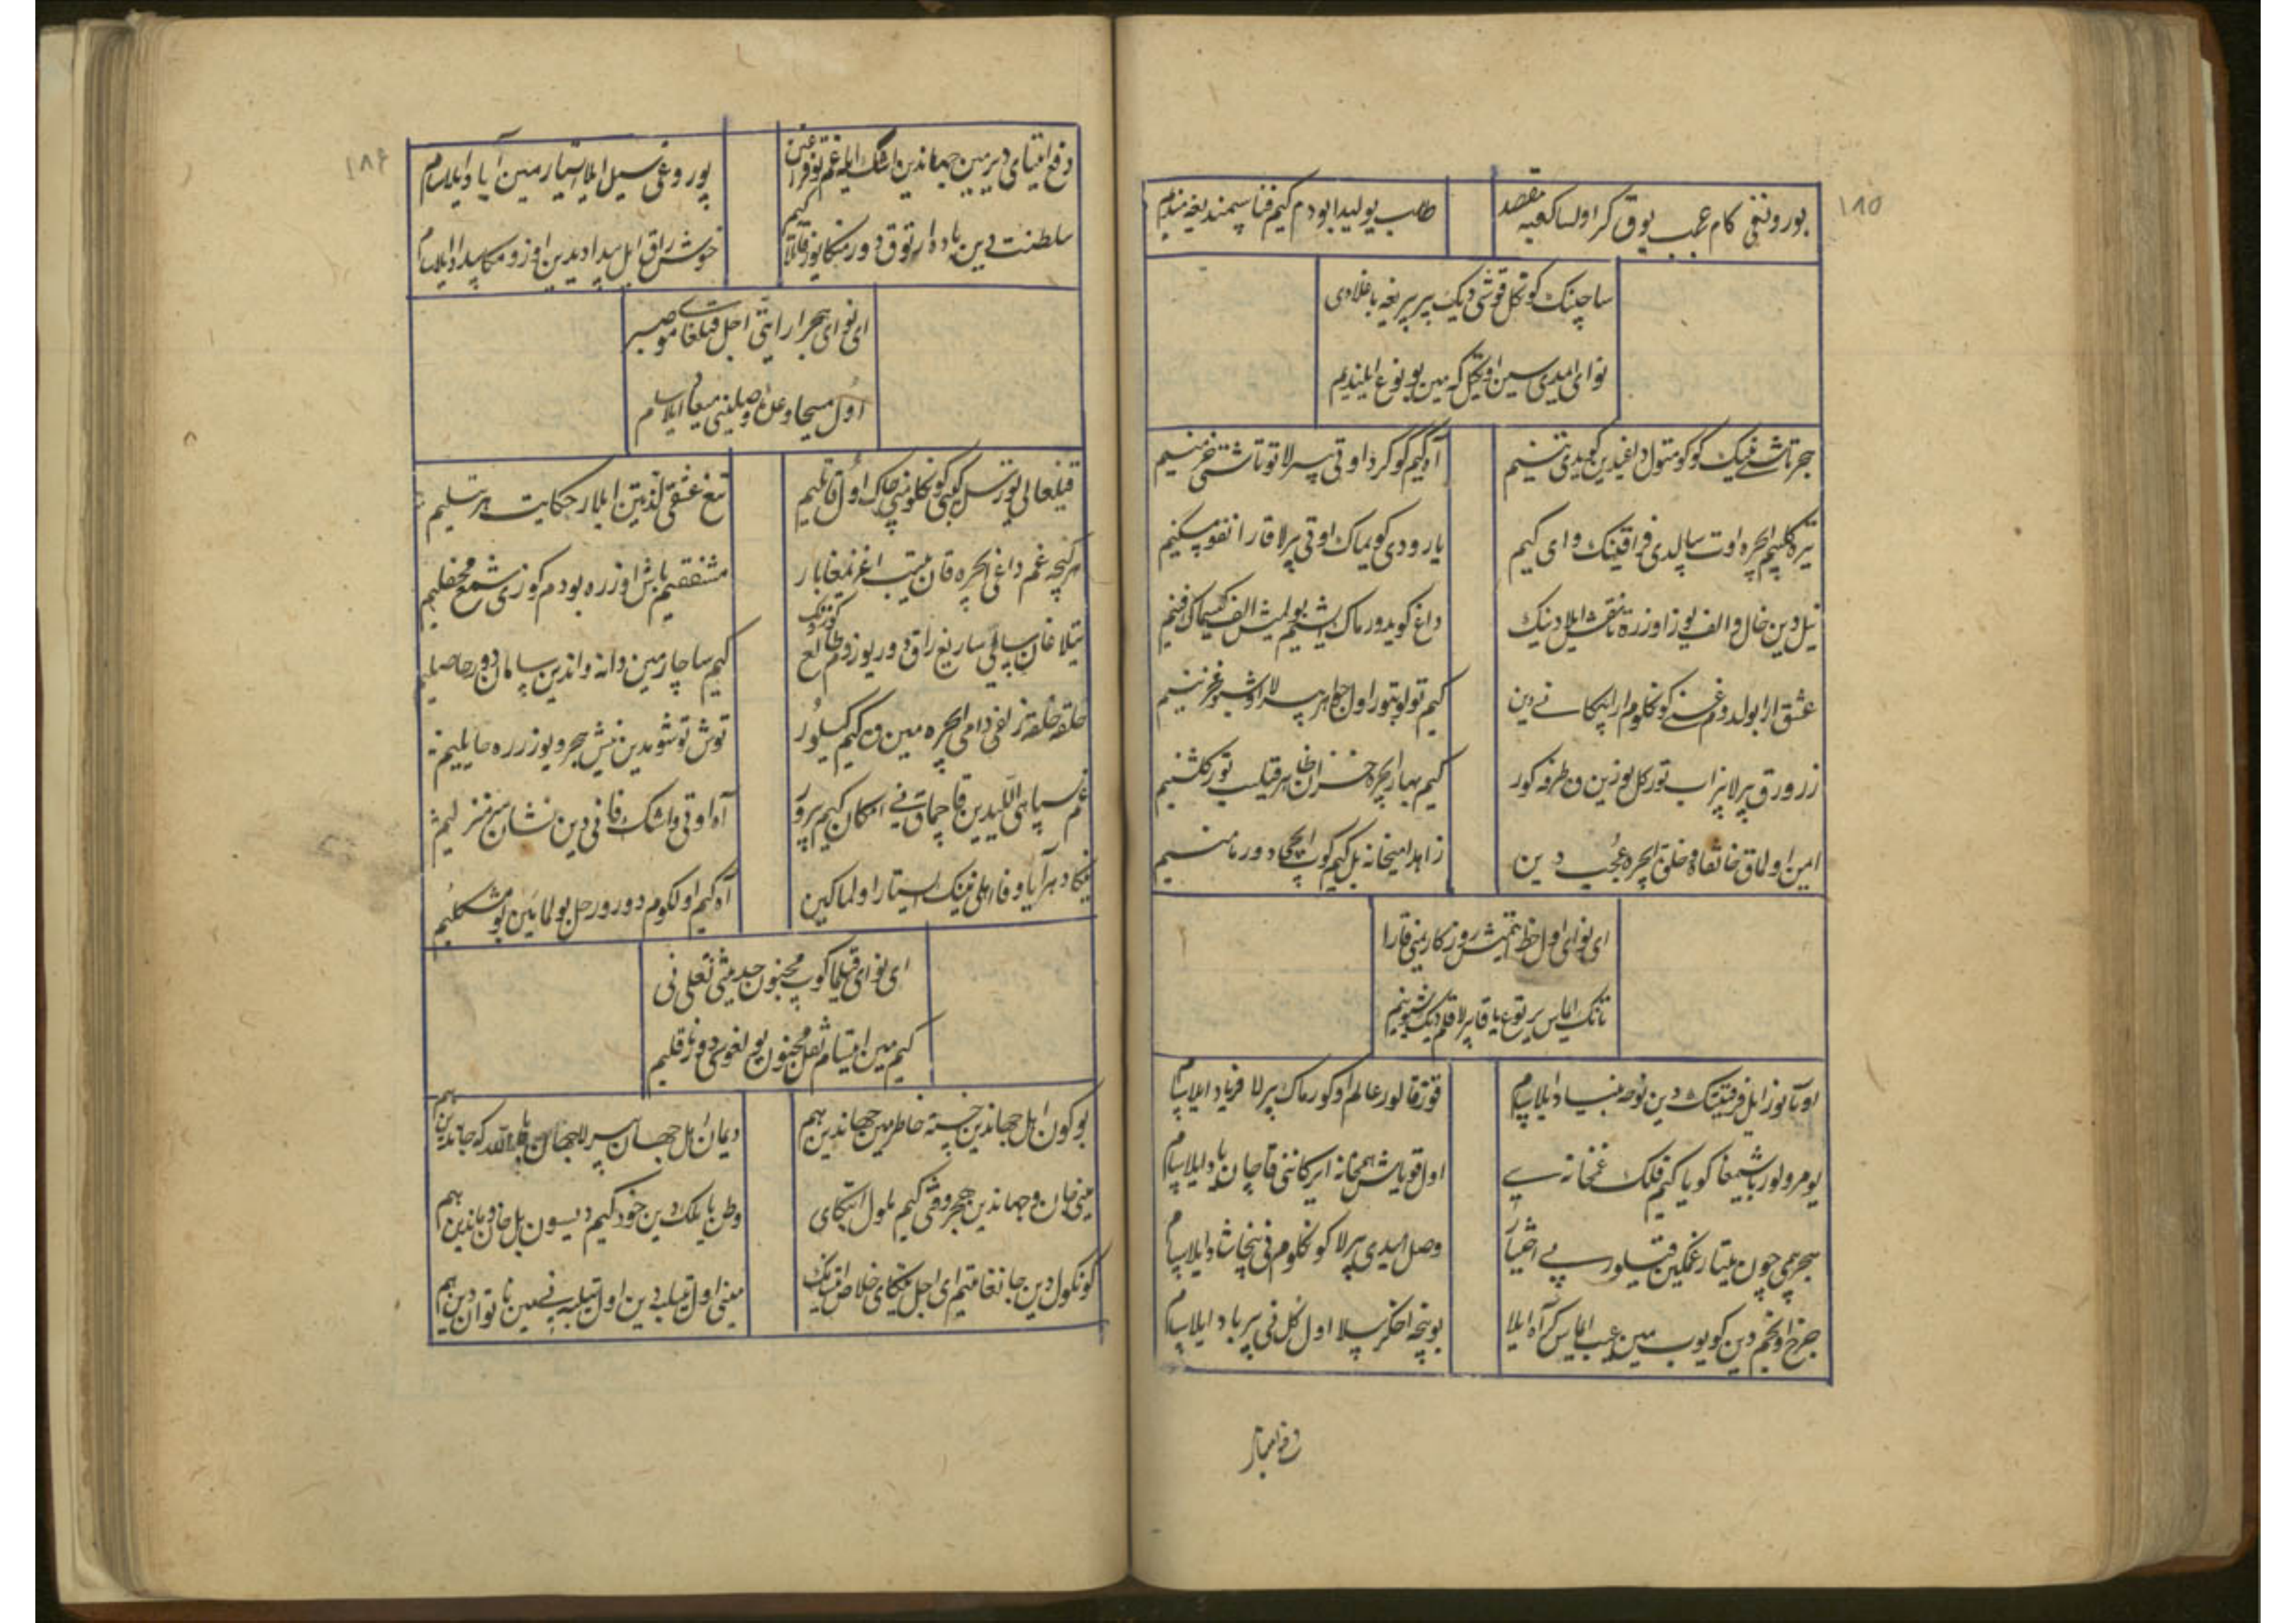 ۱۸۵
بورونغی کام عجب یوق کر اولسا کعبه مقصد
طلب یولیدا بودم کیم فنا سمندیغه میندیم
ساچینک کونکل قوشی دیک بیر پریغه باغلادی
نوای امیدی سین اوتکیل که مین بو نوع ایلیندیم
هجر تاشی نینک کوکومتول داغیدین کوییدی تنیم
آه کیم کوکرد اوتی بیرلا توتاشتی خرمنیم
تیره کلبم ایچره اوت سالیدی فراقینک وای کیم
یارودی کویماک اوتی بیرلا قارانغو مسکنیم
نیل دین خال و الف یوز اوزره تا نقش ایلادینک
داغ کویدورماک ایشیم بولمیش الف کیسماک فنیم
عشق ارا بولدی غمینک کونکلوم ارا پیکانی دین
کیم تولوبتور اول جواهر بیرلا اوشبو مخزنیم
زرورق بیرلا بیزاب تور کل یوزین و طرفه کور
کیم بهار ایچره خزان ظاهر قیلیب تور کلشنیم
امین اولماق خانقاه خلق ایچره عجب دین
زاهدا میخانه بیل کیم کوپ ایچی دور مامنیم
ای نوای اول خط ایتمیش روزکاریمنی قارا
تانک ایماس بیر نوع یا قا بیرلا قلم دیک شیونیم
اویله آتوز ایل فرقتینک دین نوحه بنیاد ایلاییام
قوزقالور عالم اوکورماک بیرلا فریاد ایلاسام
یومرولور باشیمغا کویا کیم فلک غمخانه سی
اول قویاش همخانه ایرکانی قاچان یاد ایلاسام
هجر بیمی چون ییتار غمکین قیلور بی اختیار
وصل امیدی بیرلا کونکلومنی نیچا شاد ایلاسام
چرخ اونجم دین کویوب مین عیب ایماس کر آه ایلا
بو نیچه اخکر بیلا اول کل نی بر باد ایلاسام
دفع ایتیای
۱۸۶
دفع ایتیای دیرمین جهاندین اشک ایله غم توفراغین
یوروغی سیل ایلا ایستارمین آباد ایلاسام
سلطنت دین یاد دار توق دور منکا یوز قاتلا کیم
خوشراق ایل بیدادیدین اوزومکا بیداد ایلاسام
ای نوای هجر ارا ایتتی اجل قیلغای مو صبر
اول مسیحا وعده وصلینی میعاد ایلاسام
قیلغالی یوز تیل کبی کونکلومنی چاک اول قاتلیم
تیغ عشقی لذتین ایلار حکایت هر تیلیم
هر نیچه غم داغی ایچره قان ییتیب اغزیمغا بار
مشفقیم باش اوزره بودم کوزی شمع محفلیم
تیلاغان سایی ساریغ راق دور یوزوم طالع کورونک
کیم ساچارمین دانه و اندین سامان دور حاصلیم
حلقه حلقه زلفی دامی ایچره مین و کیم کیلور
توش توشومدین نیش هجر و یوز زره حایلیم
غم سپاهی الکیدین قاچماق نی امکان کیم بیرور
آه اوتی و اشک قانی دین نشان سر منزلیم
نیکا دهر آیا وفا اهلی نینک ایستار اولماکین
آه کیم اولکوم دورور حل بولماین بو مشکلیم
ای نوای قیلما کوپ مجنون حدیثی نقلی نی
کیم مین ایتسام نقل مجنون بولغوسی دور ناقلیم
بو کون اهل جهاندین خسته خاطرمین جهاندین هم
دیمان اهل جهان بیرلا جهان بالله که جاندین هم
مینی جان و جهاندین هجر و قتی کیم ملول ایتکای
وطن یا ملک دین خود کیم دیسون یا خان و ماندین هم
کونکول دین جانغا ییتتیم ای اجل نیتکای خلاص ایتسانک
مینی اول تیلبه دین اول تیلبه نی مین ناتواندین هم